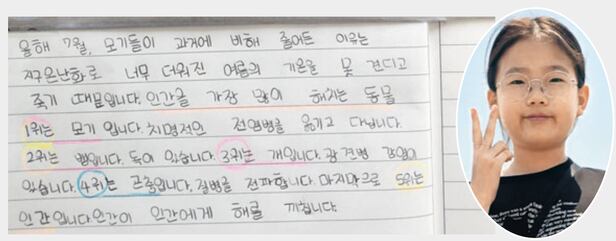 올해 7월, 모기들이 과거에 비해 줄어든 이유는
지구온난화로 너무 더워진 여름의 기온을 못 견디고
죽기 때문입니다. 인간을 가장 많이 해치는 동물
1위는 모기 입니다. 치명적인 전염병을 옮기고 다닙니다.
2위는 뱀입니다. 독이 있습니다. 3위는 개입니다. 광견병 감염이
있습니다. 4위는 곤충입니다. 질병을 전파합니다. 마지막으로 5위는
인간입니다. 인간이 인간에게 해를 끼칩니다.